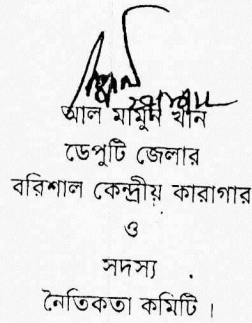 আল মামুন খান
ডেপুটি জেলার
বরিশাল কেন্দ্রীয় কারাগার
ও
সদস্য
নৈতিকতা কমিটি ।